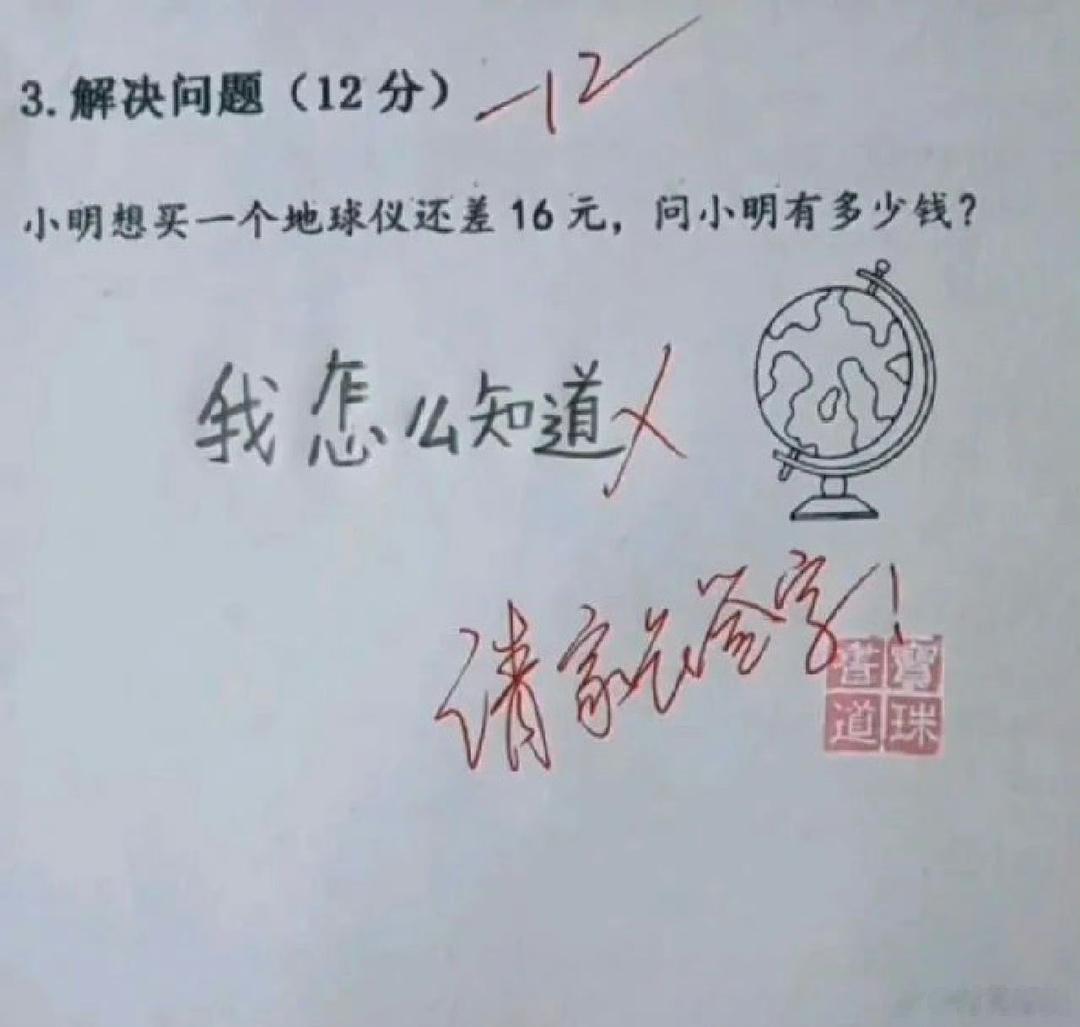 3.解决问题（12分）
-12
小明想买一个地球仪还差 16 元，问小明有多少钱？
我怎么知道
请家长签字！
书宝
道珠